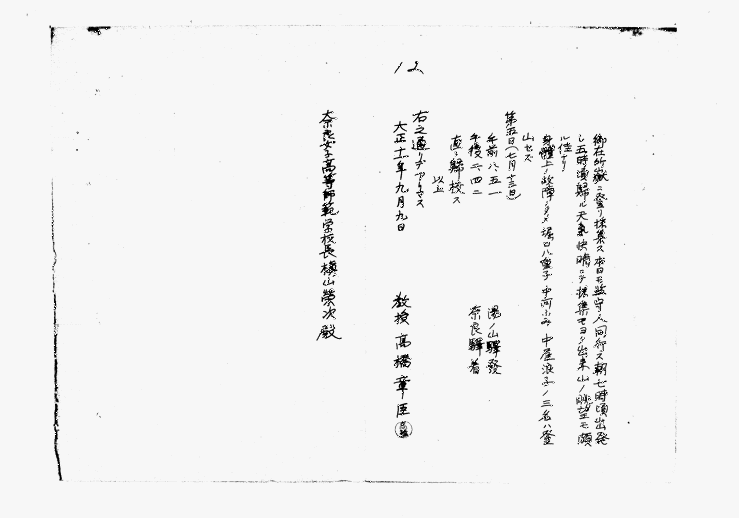 12
御在所嶽ニ登リ採集ス本日モ監守人同行ス朝七時頃出発
シ五時頃帰ル天気快晴ニテ採集モヨク出来山ノ眺望モ頗
ル佳ナリ
身體上ノ故障ノタメ堀口八重子中河小みゑ中屋浪子ノ三名ハ登
山セズ
第五日(七月十三日)
午前八、五一 湯ノ山驛發
午後二、四二 奈良驛着
直ニ歸校ス
以上
右之通リデアリマス
大正十一年九月九日
教授 高橋章臣
奈良女子高等師範学校長槇山榮次殿